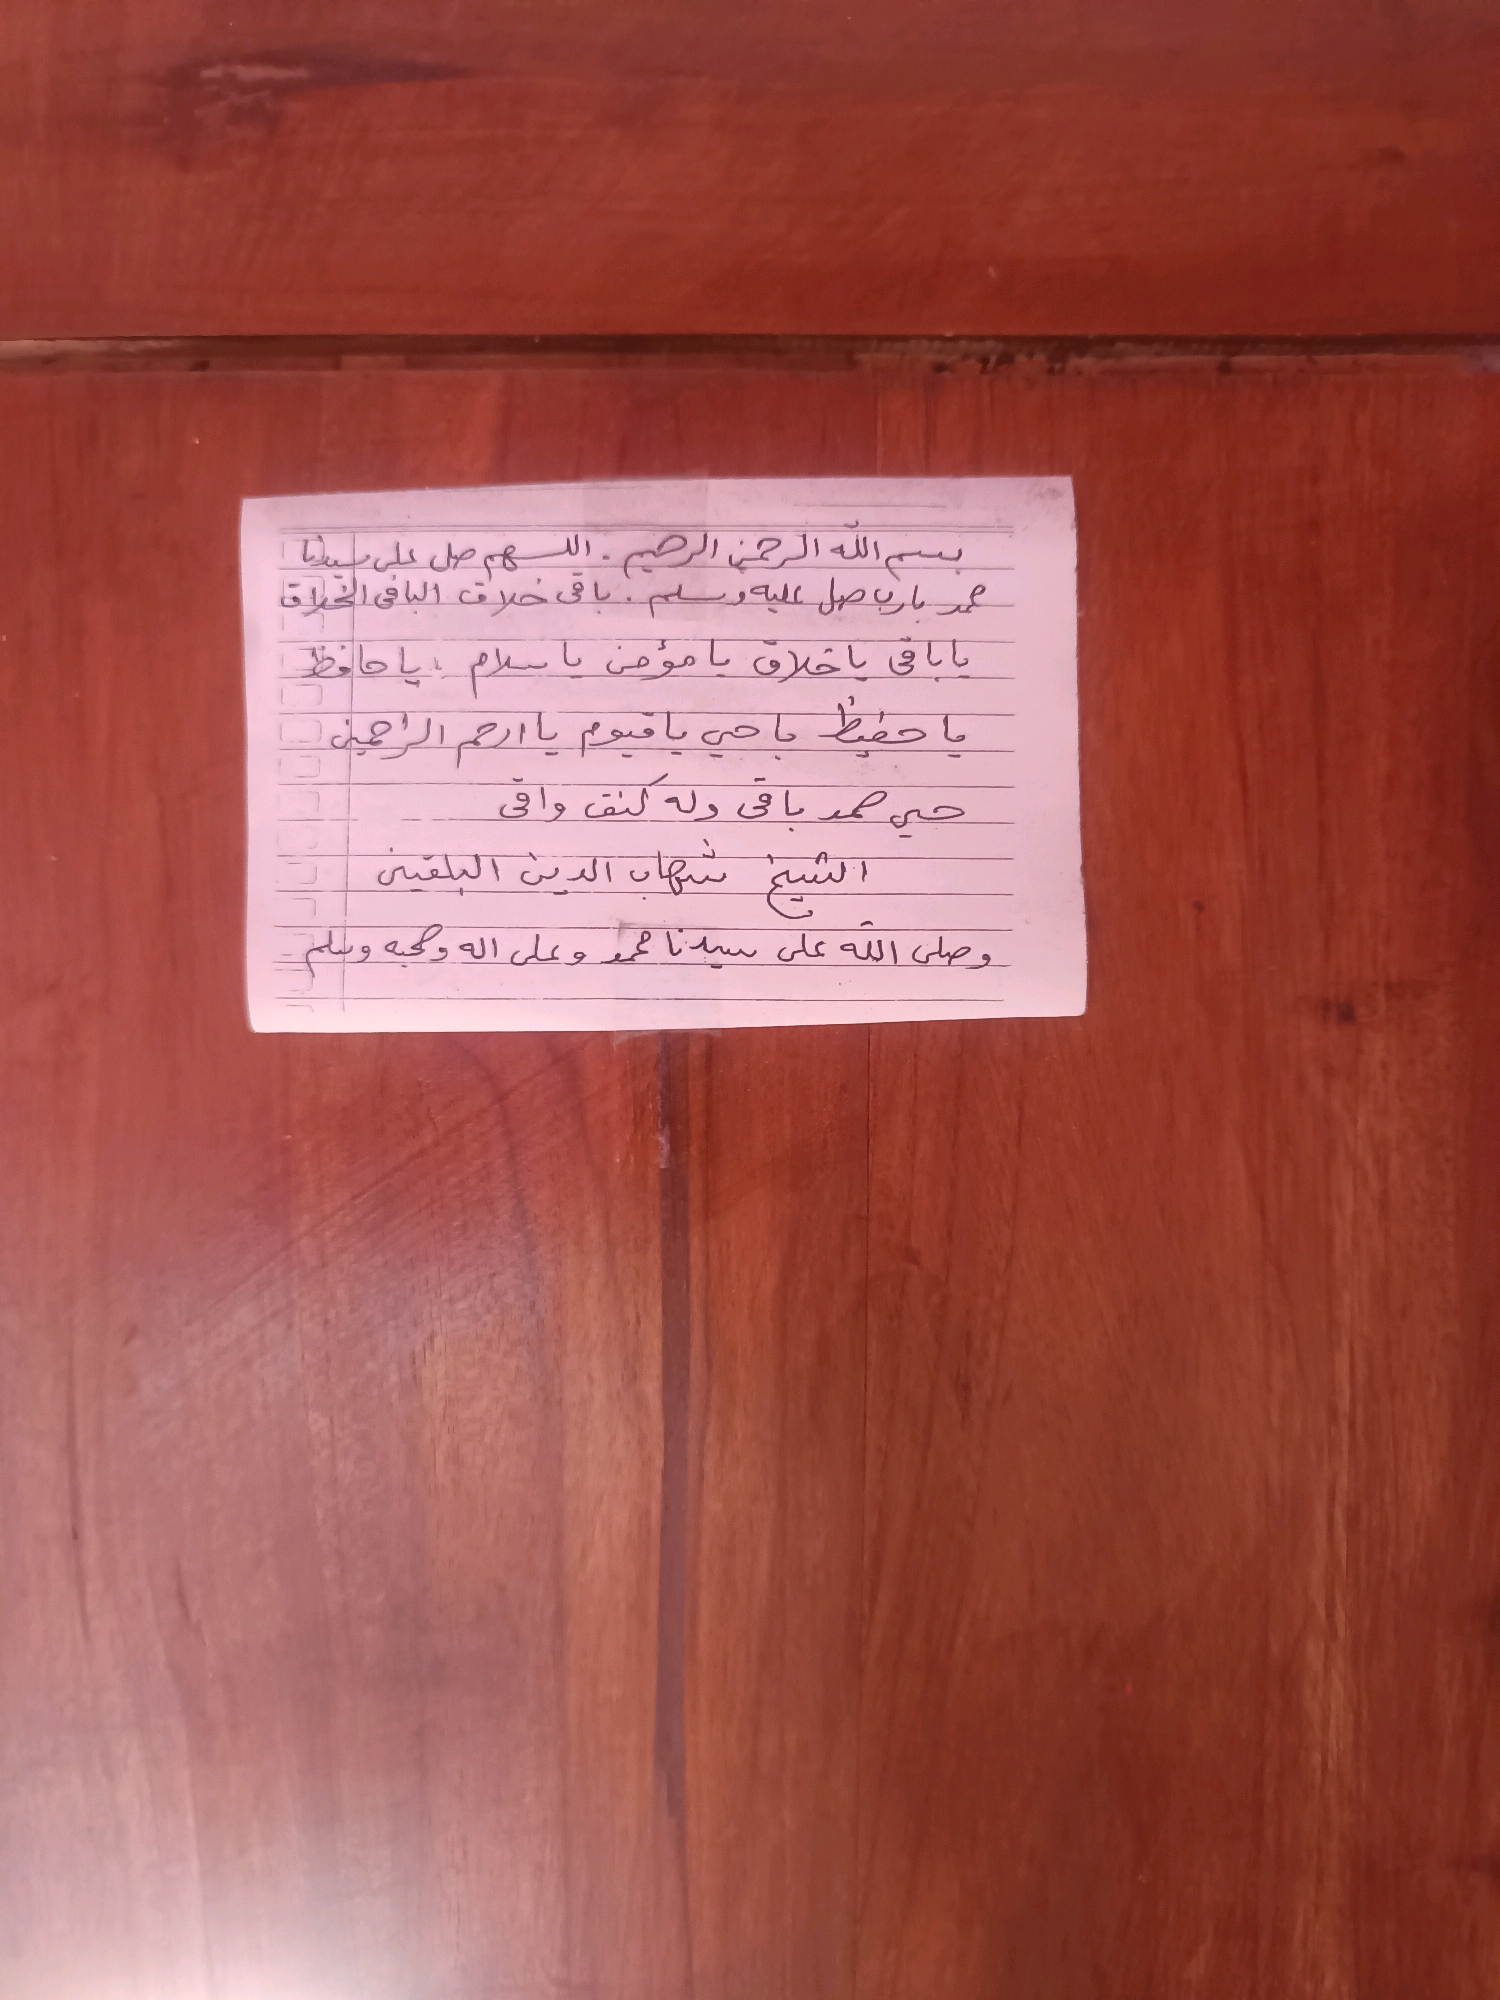 بسم الله الرحمن الرحيم . اللهم صل على سيدنا
محمد يارب صل عليه وسلم . باقى خلاق الباقى الخلاق
يا باقى يا خلاق يا مؤمن يا سلام ، يا حافظ
يا حفيظ يا حي يا قيوم يا ارحم الراحمين
حي صمد باقى وله كنف واقى
الشيخ شهاب الدين البلقين
وصلى الله على سيدنا محمد وعلى اله وصحبه وسلم